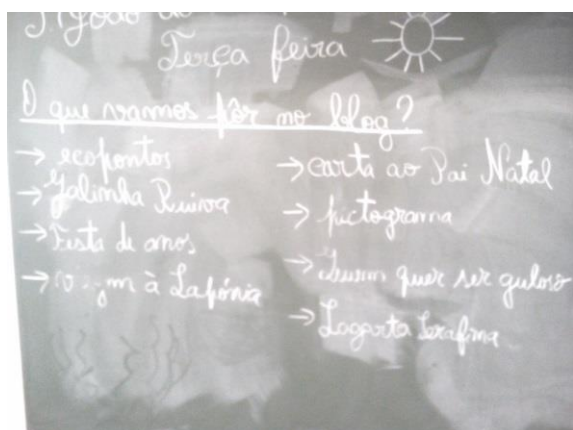 S. João da
Terça feira
O que vamos pôr no blog?
→ ecopontos
→ Galinha Ruiva
→ Festa de anos
→ à Lapónia
→ carta ao Pai Natal
→ pictograma
→ Quem quer ser guloso
→ Lagarta Serafina